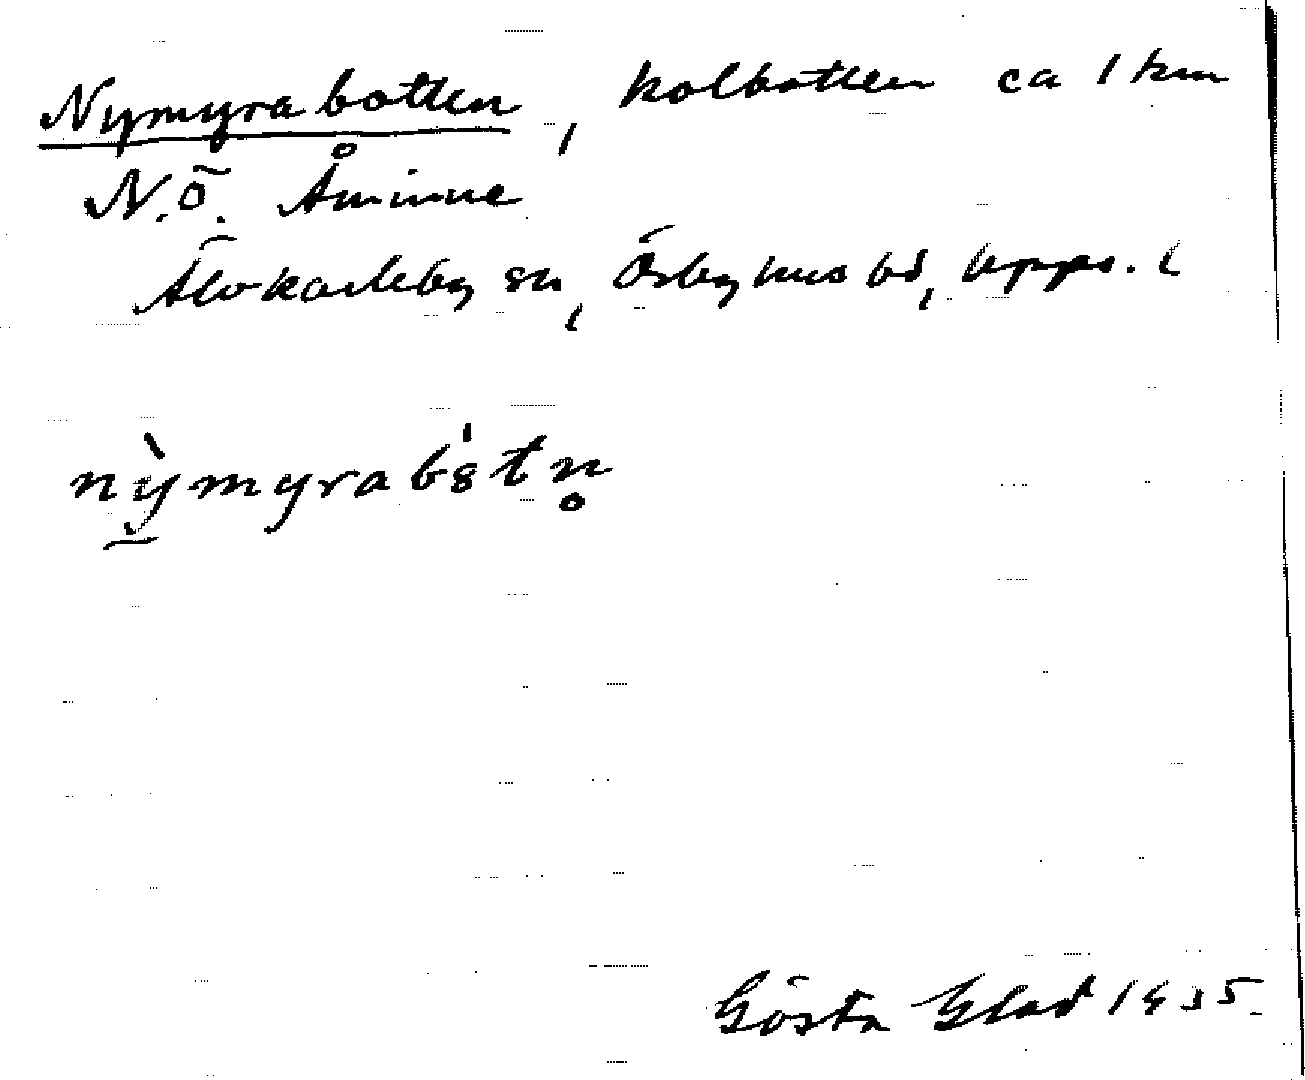 Nymyrabotten, kolbotten ca 1 km
N.Ö. Åminne
Älvkarleby sn, Örbyhus hd, Upps. l
Gösta Glad 1935